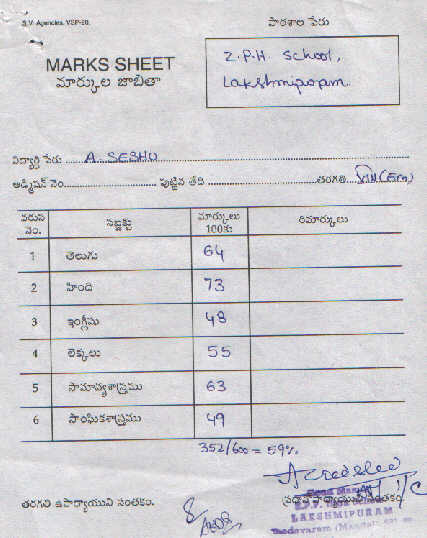 S.V. Agencies, VSP-20.
పాఠశాల పేరు
MARKS SHEET
మార్కుల జాబితా
Z.P.H. School,
Lakshmipuram.
విద్యార్థి పేరు A. SESHU
అడ్మిషన్ నెం. పుట్టిన తేది తరగతి VIII (EM)
వరుస నెం. సబ్జక్టు మార్కులు 100కు రిమార్కులు
1 తెలుగు 64
2 హింది 73
3 ఇంగ్లీషు 48
4 లెక్కలు 55
5 సామాన్యశాస్త్రము 63
6 సాంఘికశాస్త్రము 49
352/600 = 59%
తరగతి ఉపాధ్యాయుని సంతకం. ప్రధానోపాధ్యాయుని సంతకం
I/C
LAKSHMIPURAM